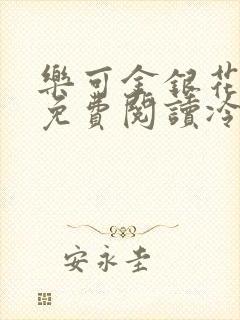 樂可金銀花
免費閱讀冷
安永圭